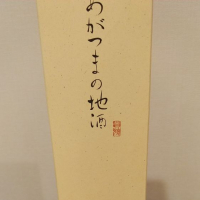 あがつまの地酒